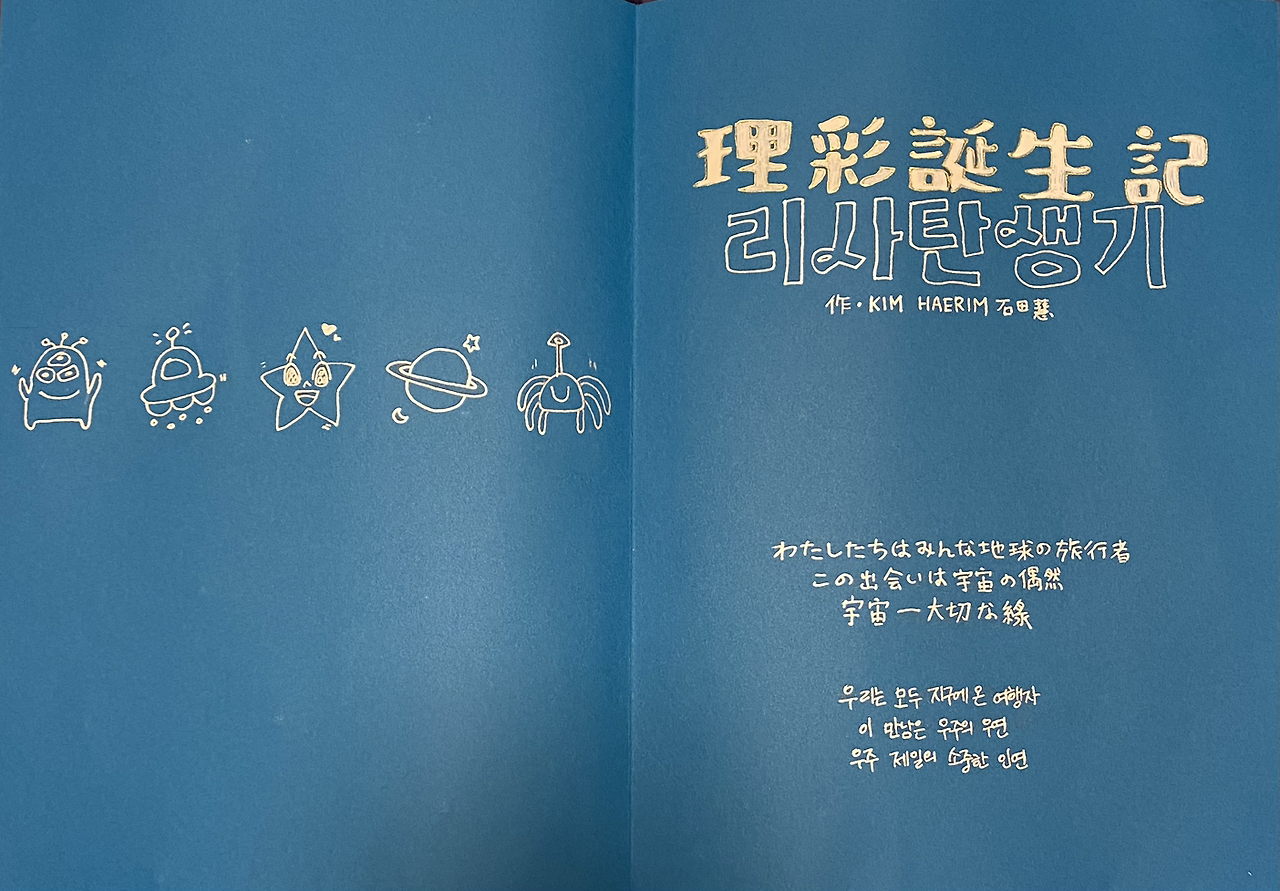 理彩誕生記
리사탄생기
作・KIM HAERIM 石田慧
わたしたちはみんな地球の旅行者
この出会いは宇宙の偶然
宇宙一大切な縁
우리는 모두 지구에 온 여행자
이 만남은 우주의 우연
우주 제일의 소중한 인연